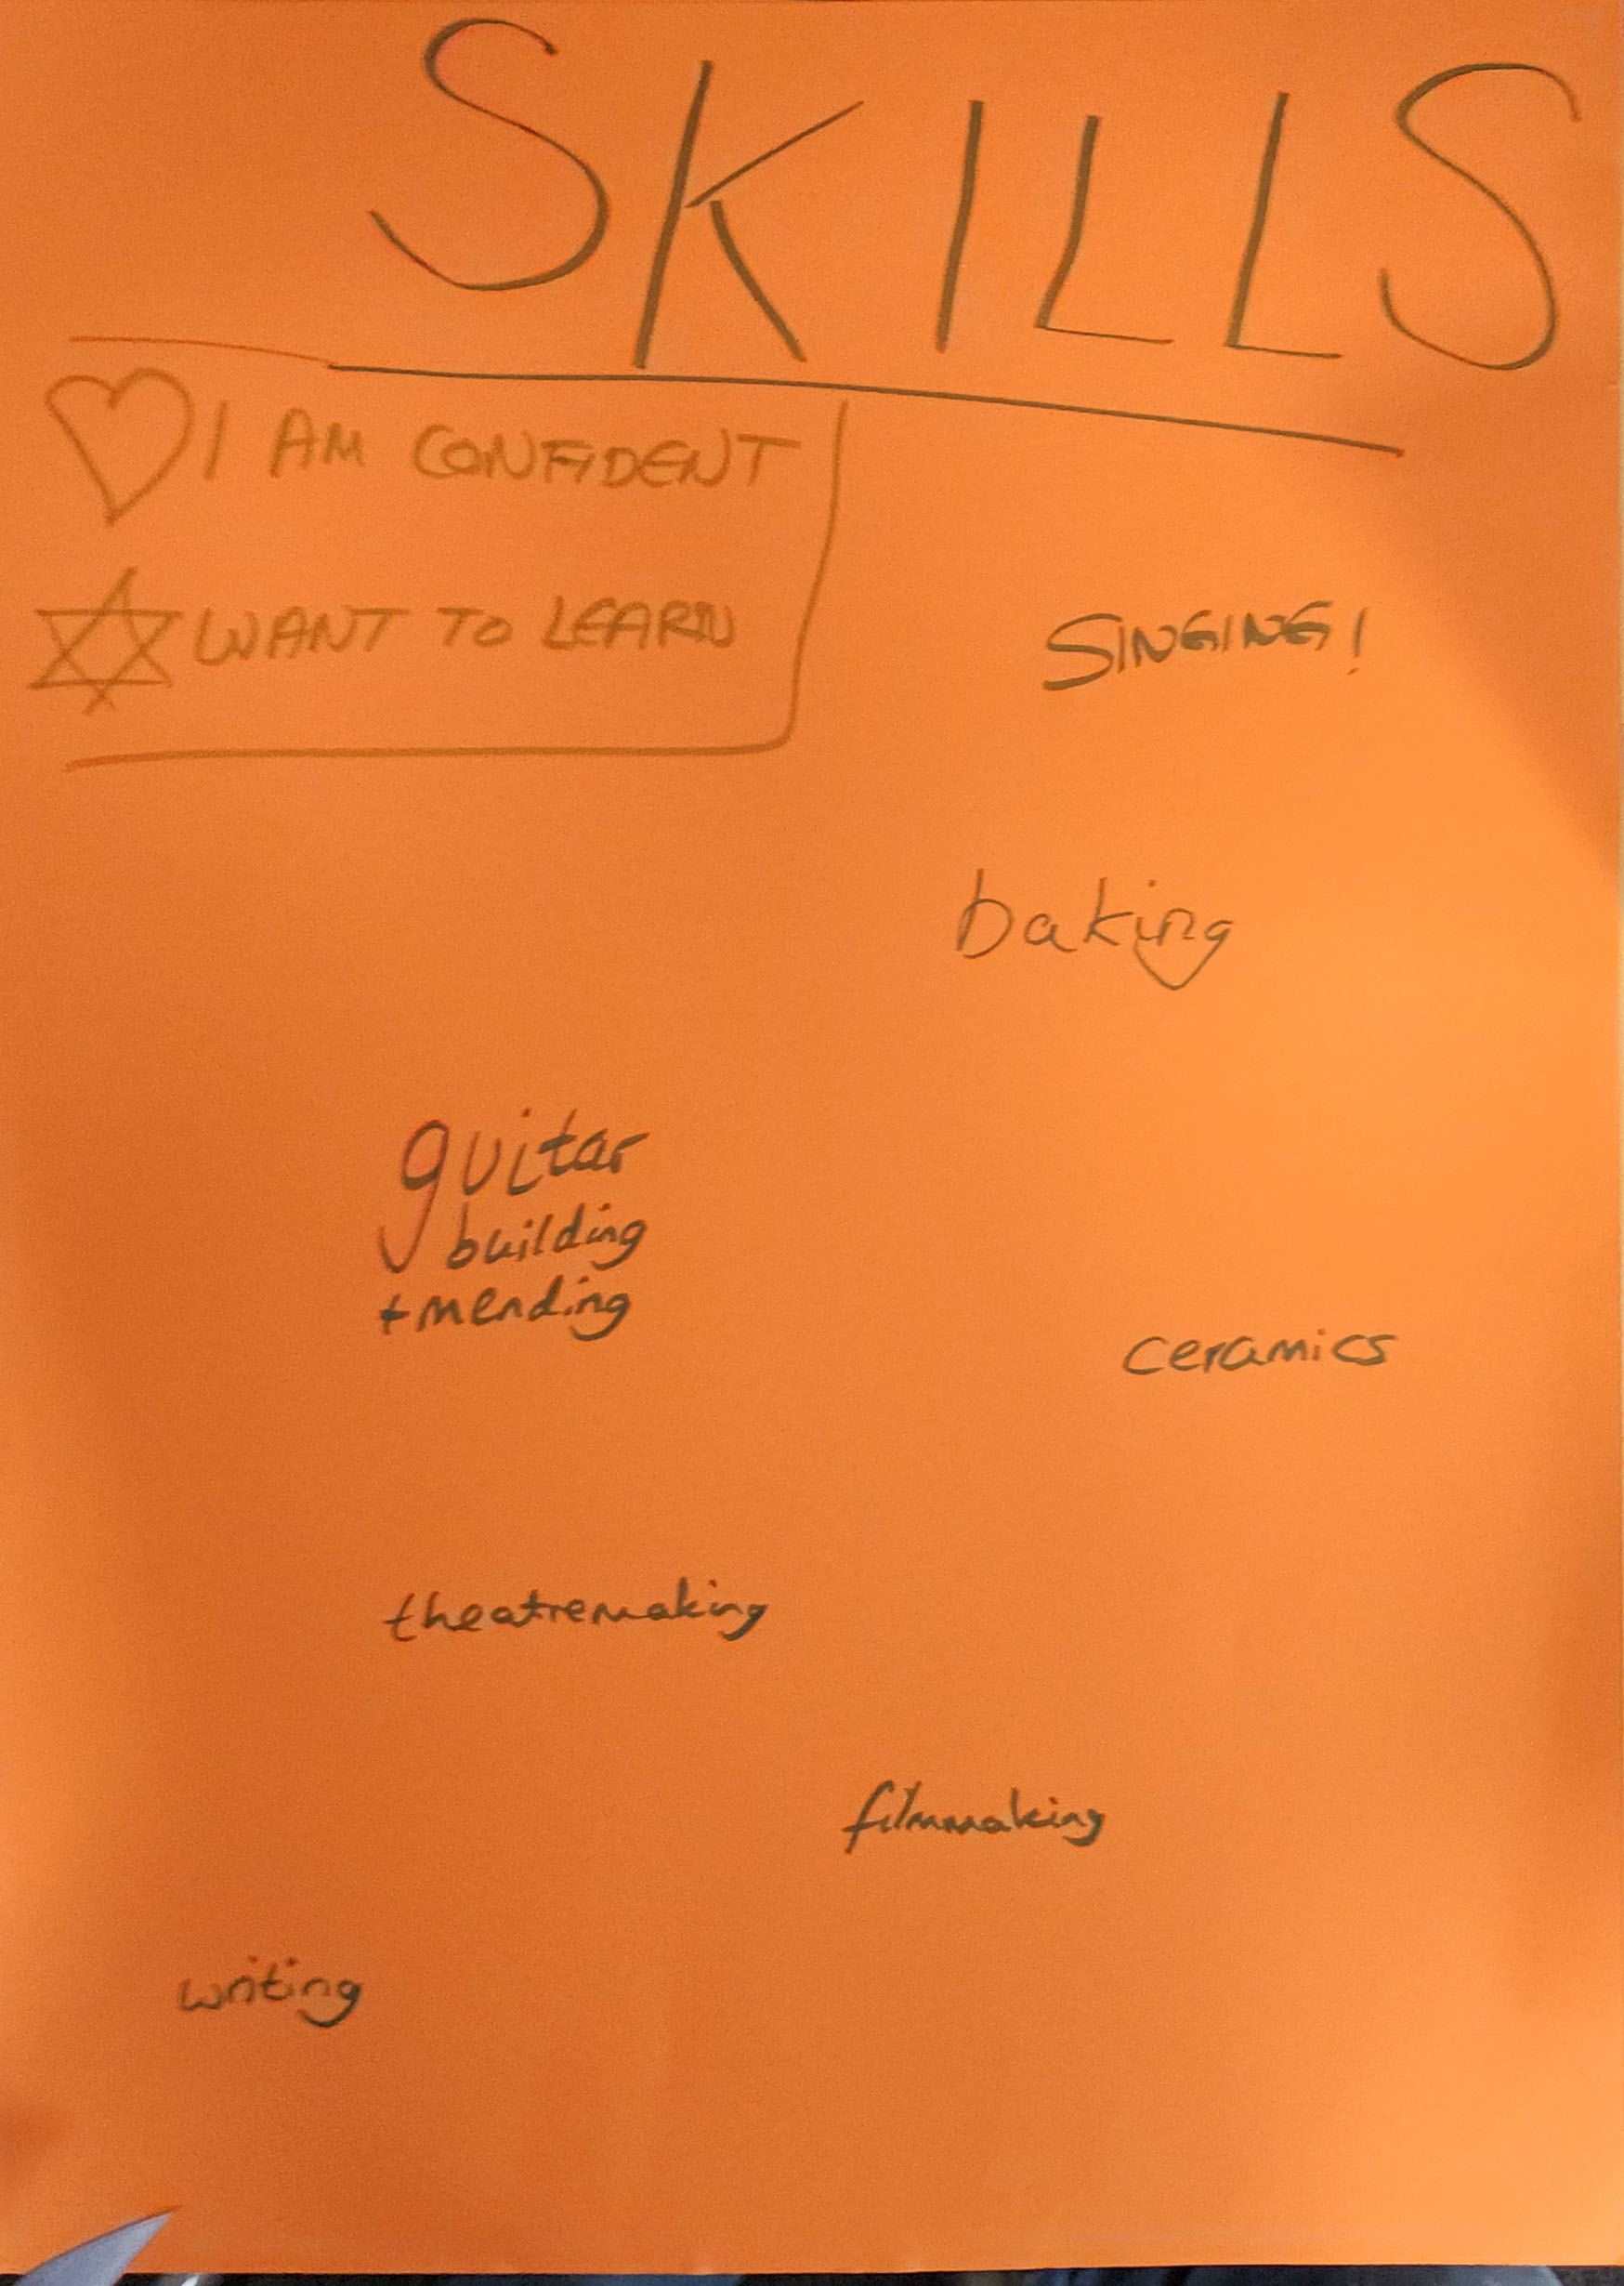 SKILLS
I AM CONFIDENT
WANT TO LEARN
SINGING!
baking
guitar
building
+mending
ceramics
theatremaking
filmmaking
writing